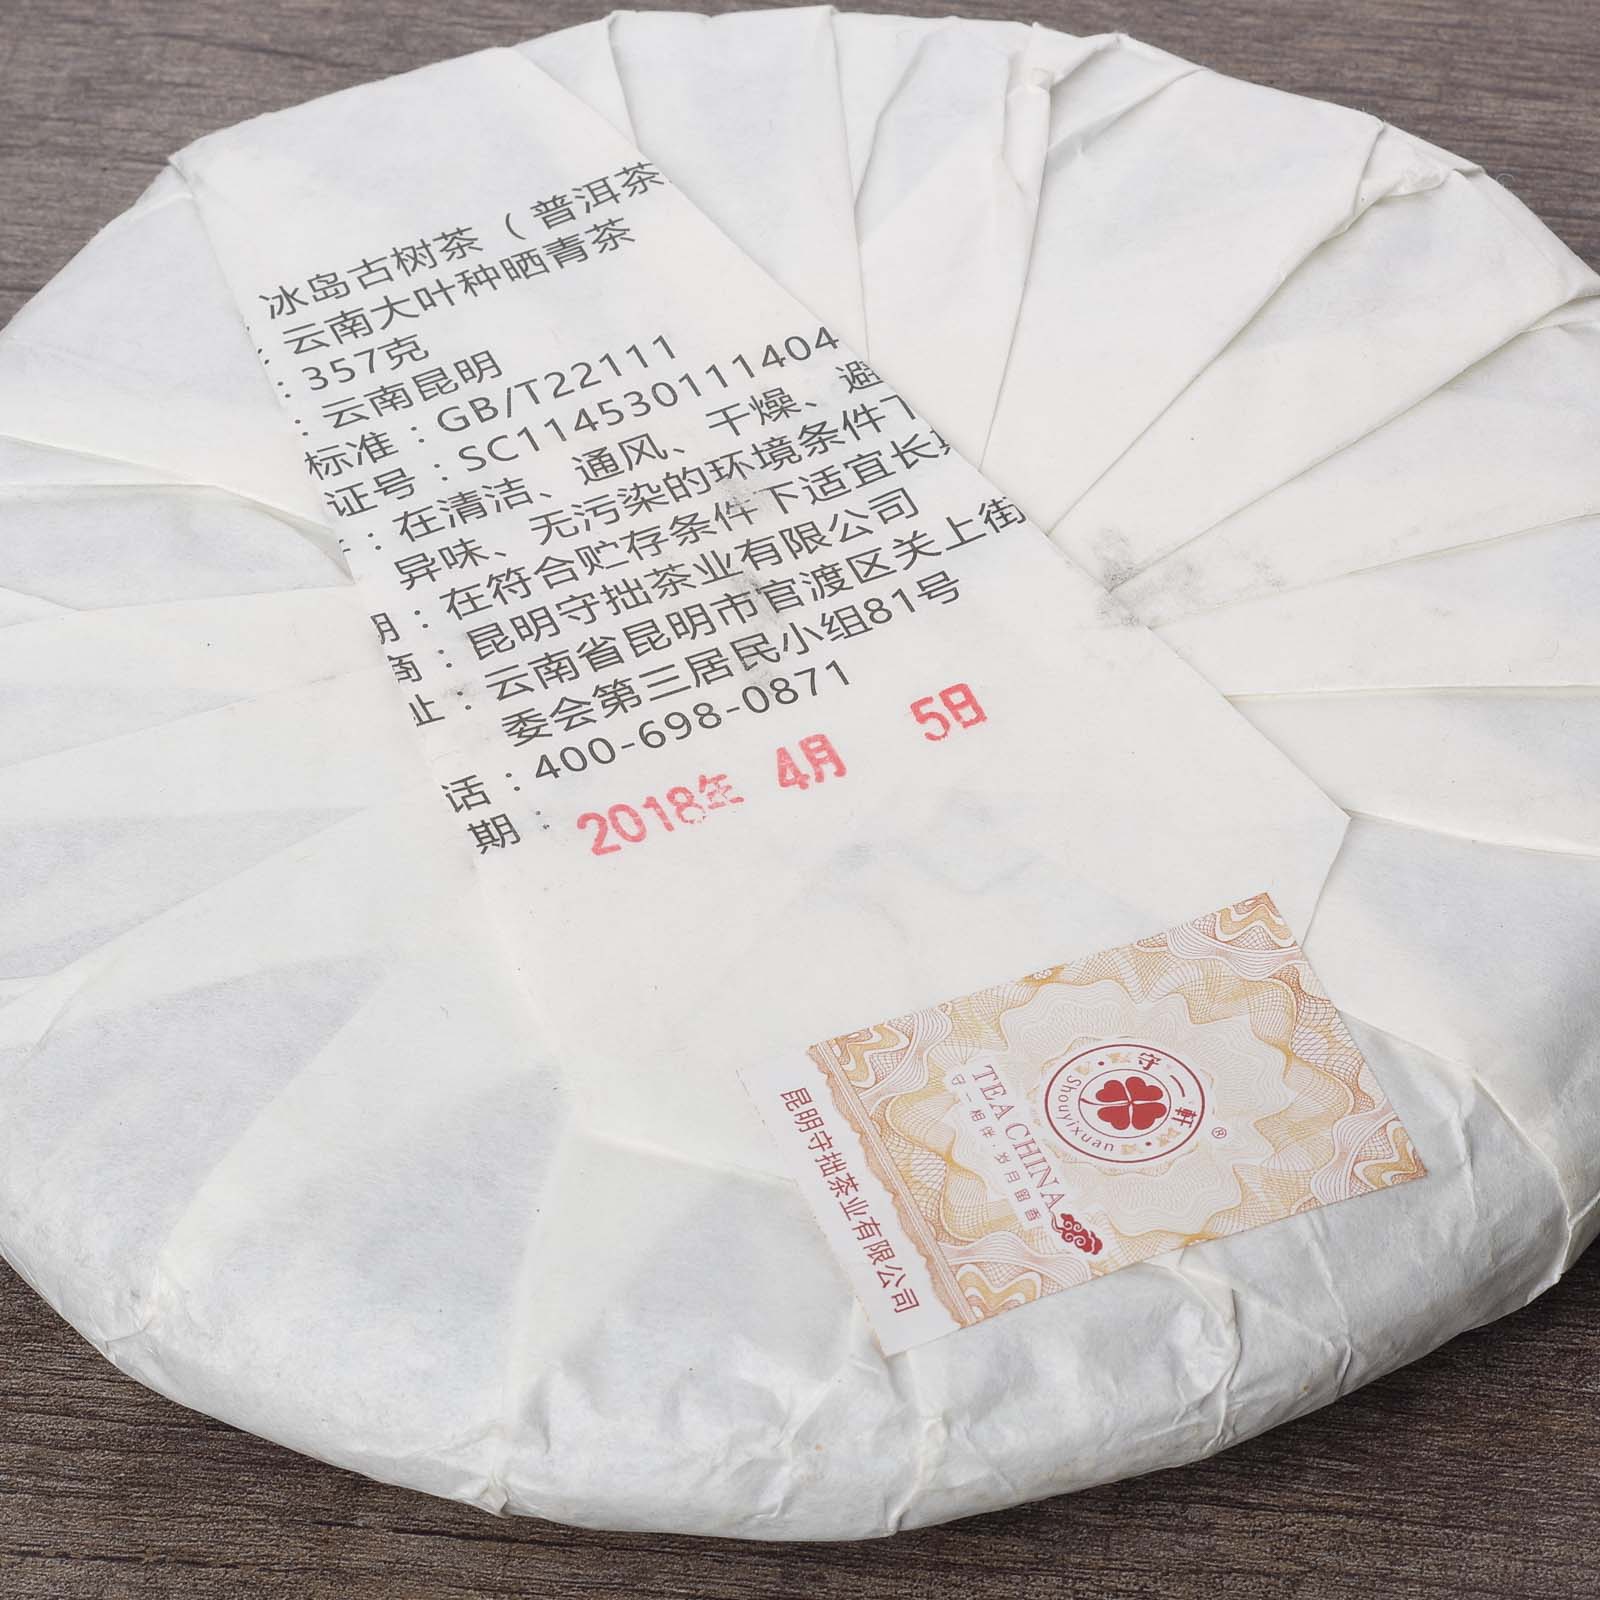 冰岛古树茶（普洱茶
：云南大叶种晒青茶
：357克
：云南昆明
标准：GB/T22111
证号：SC11453011140​4
：在清洁、通风、干燥、避
异味、无污染的环境条件下
期：在符合贮存条件下适宜长期
商：昆明守拙茶业有限公司
址：云南省昆明市官渡区关上街
委会第三居民小组81号
话：400-698-0871
期：2018年 4月 5日
守一軒
Shouyixuan
®
TEA CHINA
守一相伴·岁月留香
昆明守拙茶业有限公司